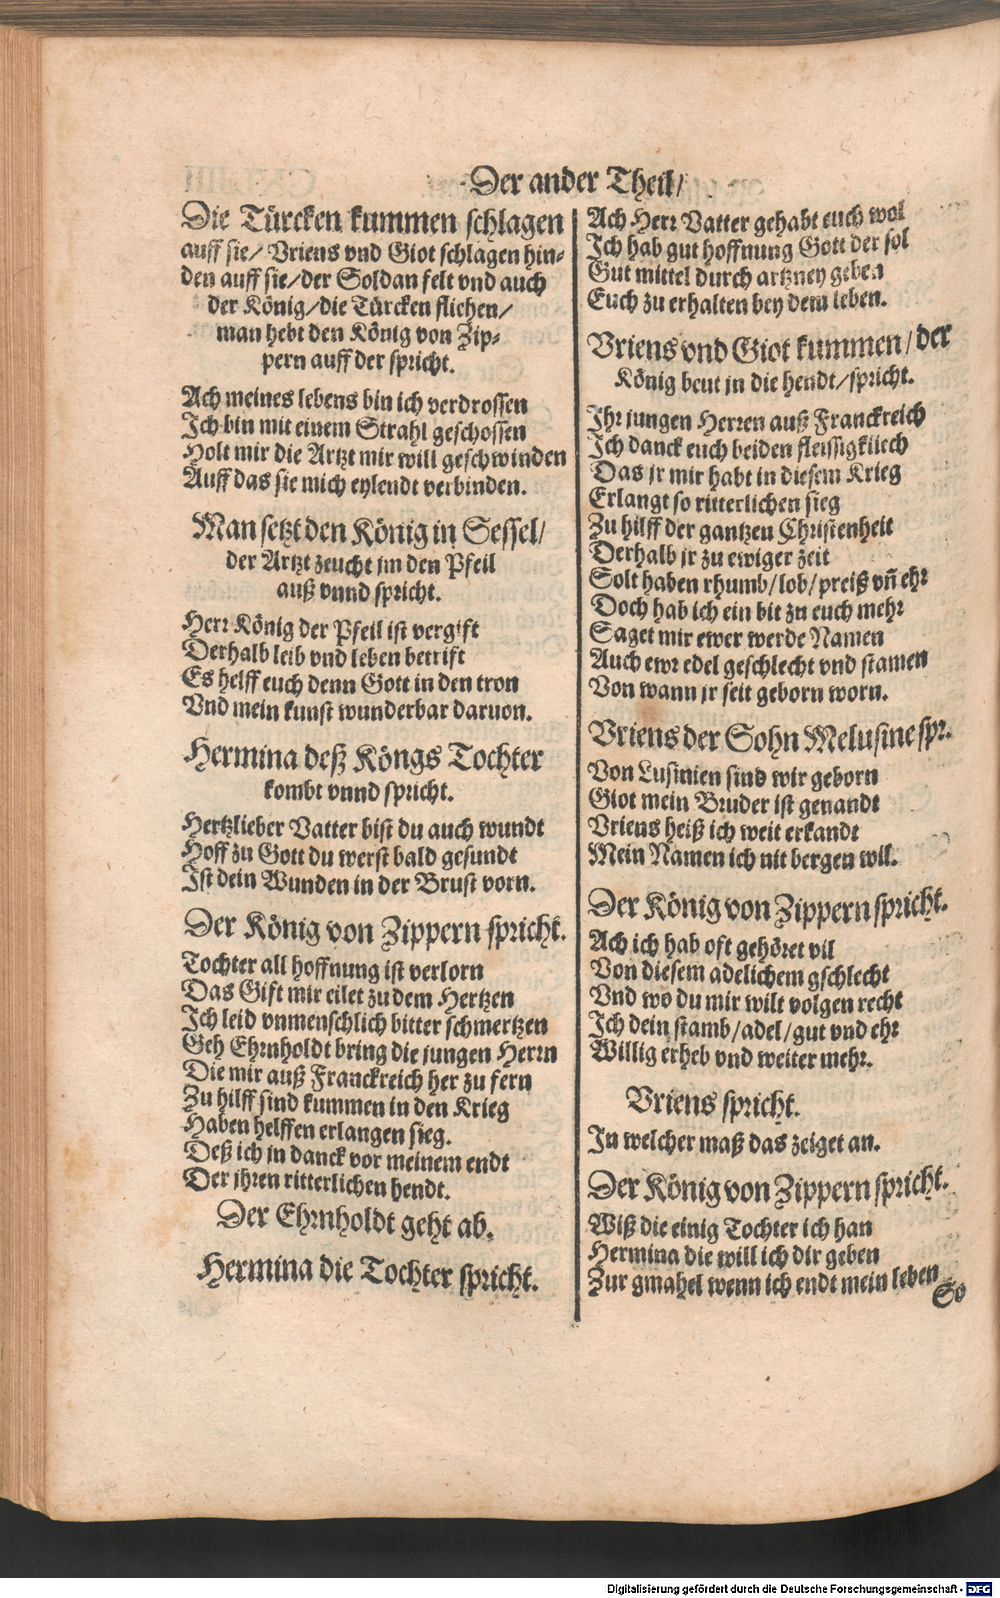 Der ander Theil/
Die Türcken kummen schlagen
auff sie/ Vriens vnd Giot schlagen hin-
den auff sie/der Soldan felt vnd auch
der König/die Türcken fliehen/
man hebt den König von Zip-
pern auff der spricht.
Ach meines lebens bin ich verdrossen
Ich bin mit einem Strahl geschossen
Holt mir die Artzt mir will geschwinden
Auff das sie mich eylendt verbinden.
Man setzt den König in Sessel/
der Artzt zeucht jm den Pfeil
auß vnnd spricht.
Herr König der Pfeil ist vergift
Derhalb leib vnd leben betrift
Es helff euch denn Gott in den tron
Vnd mein kunst wunderbar daruon.
Hermina deß Köngs Tochter
kombt vnnd spricht.
Hertzlieber Vatter bist du auch wundt
Hoff zu Gott du werst bald gesundt
Ist dein Wunden in der Brust vorn.
Der König von Zippern spricht.
Tochter all hoffnung ist verlorn
Das Gift mir eilet zu dem Hertzen
Ich leid vnmenschlich bitter schmertzen
Geh Ehrnholdt bring die jungen Herrn
Die mir auß Franckreich her zu fern
Zu hilff sind kummen in den Krieg
Haben helffen erlangen sieg.
Deß ich jn danck vor meinem endt
Der jhren ritterlichen hendt.
Der Ehrnholdt geht ab.
Hermina die Tochter spricht.
Ach Herr Vatter gehabt euch wol
Ich hab gut hoffnung Gott der sol
Gut mittel durch artzney geben
Euch zu erhalten bey dem leben.
Vriens vnd Giot kummen/der
König beut jn die hendt/spricht.
Ihr jungen Herren auß Franckreich
Ich danck euch beiden fleissigklich
Das jr mir habt in diesem Krieg
Erlangt so ritterlichen sieg
Zu hilff der gantzen Christenheit
Derhalb jr zu ewiger zeit
Solt haben rhumb/lob/preiß vñ ehr
Doch hab ich ein bit zu euch mehr
Saget mir ewer werde Namen
Auch ewr edel geschlecht vnd stamen
Von wann jr seit geborn worn.
Vriens der Sohn Melusine spr.
Von Lusinien sind wir geborn
Giot mein Bruder ist genandt
Vriens heiß ich weit erkandt
Mein Namen ich nit bergen wil.
Der König von Zippern spricht.
Ach ich hab oft gehöret vil
Von diesem adelichem gschlecht
Vnd wo du mir wilt volgen recht
Ich dein stamb/adel/gut vnd ehr
Willig erheb vnd weiter mehr.
Vriens spricht.
In welcher maß das zeiget an.
Der König von Zippern spricht.
Wiß die einig Tochter ich han
Hermina die will ich dir geben
Zur gmahel wenn ich endt mein leben
So
Digitalisierung gefördert durch die Deutsche Forschungsgemeinschaft - DFG